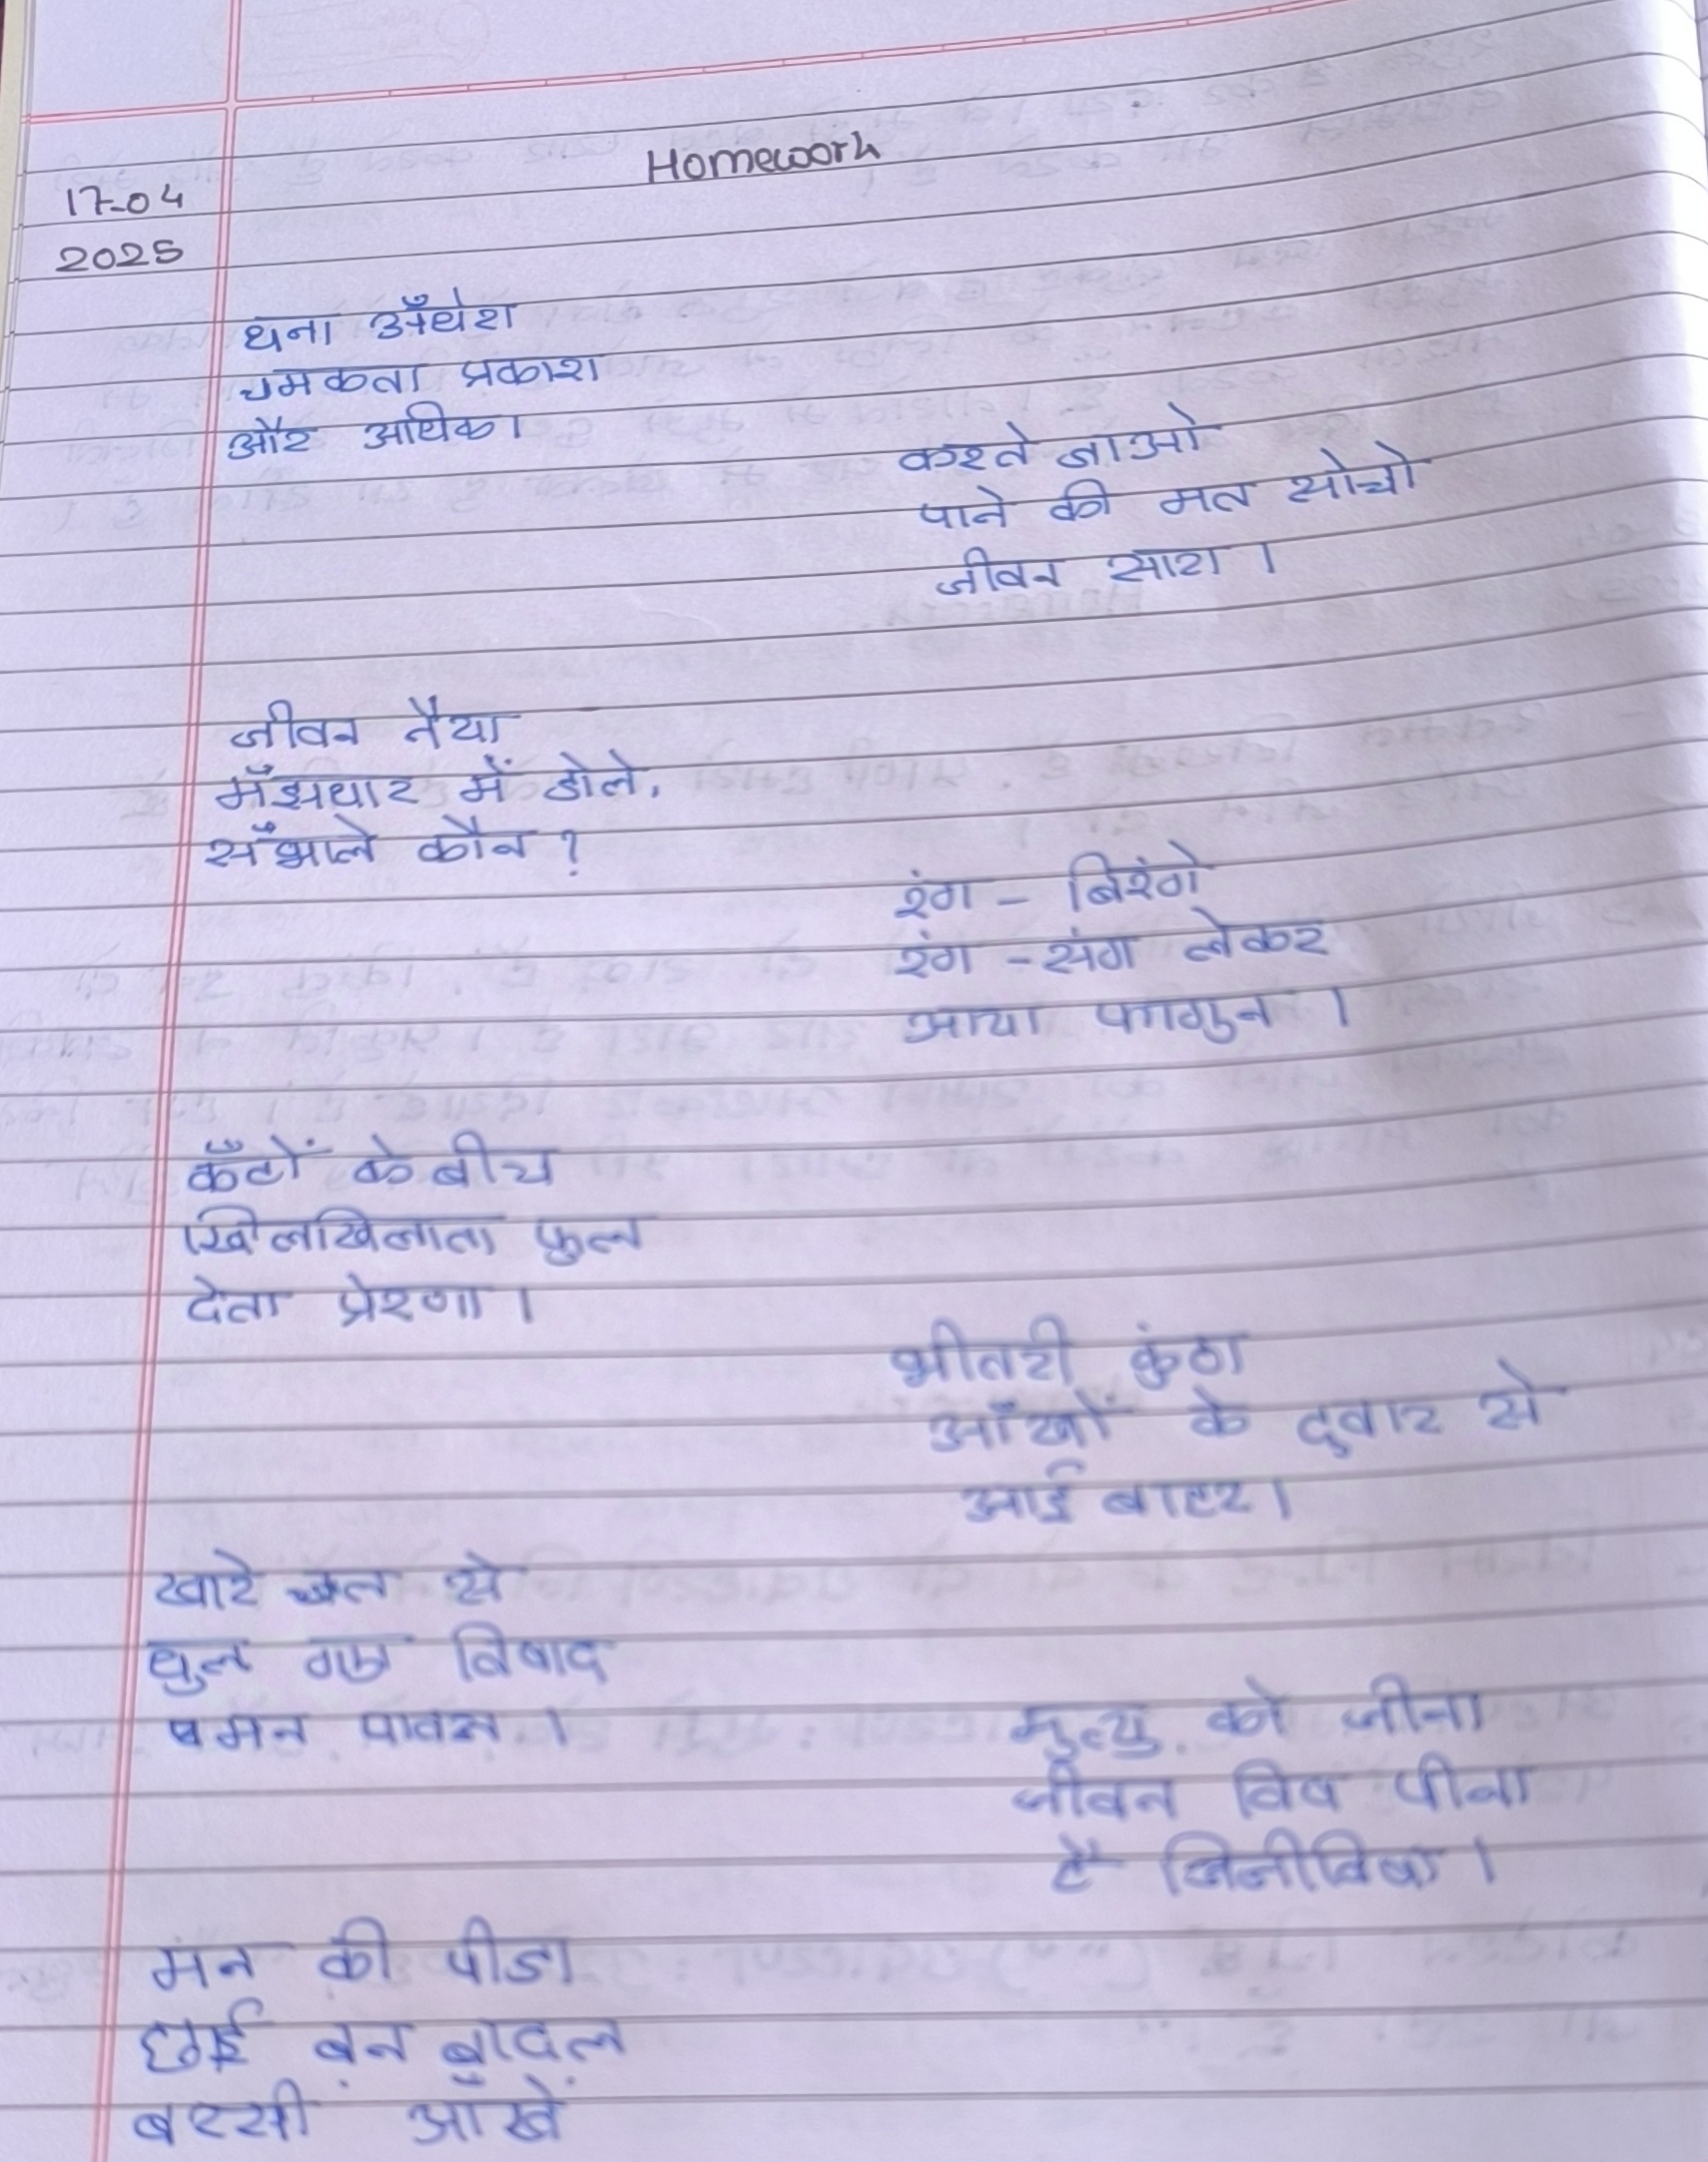 Homework
17-04
2025
घना अँधेरा
चमकता प्रकाश
और अधिक।
करते जाओ
पाने की मत सोचो
जीवन सारा ।
जीवन नैया
मँझधार में डोले,
सँभाले कौन ?
रंग - बिरंगे
रंग - संग लेकर
आया फागुन ।
कँटों के बीच
खिलखिलाता फुल
देता प्रेरणा ।
भीतरी कुंठा
आँखों के दुवार से
आई बाहर ।
खारे जल से
धुल गए विषाद
मन पावन ।
मुत्यु को जीना
जीवन विष पीना
है जिजीविषा ।
मन की पीडा
छाई बन बादल
बरसी आँखें